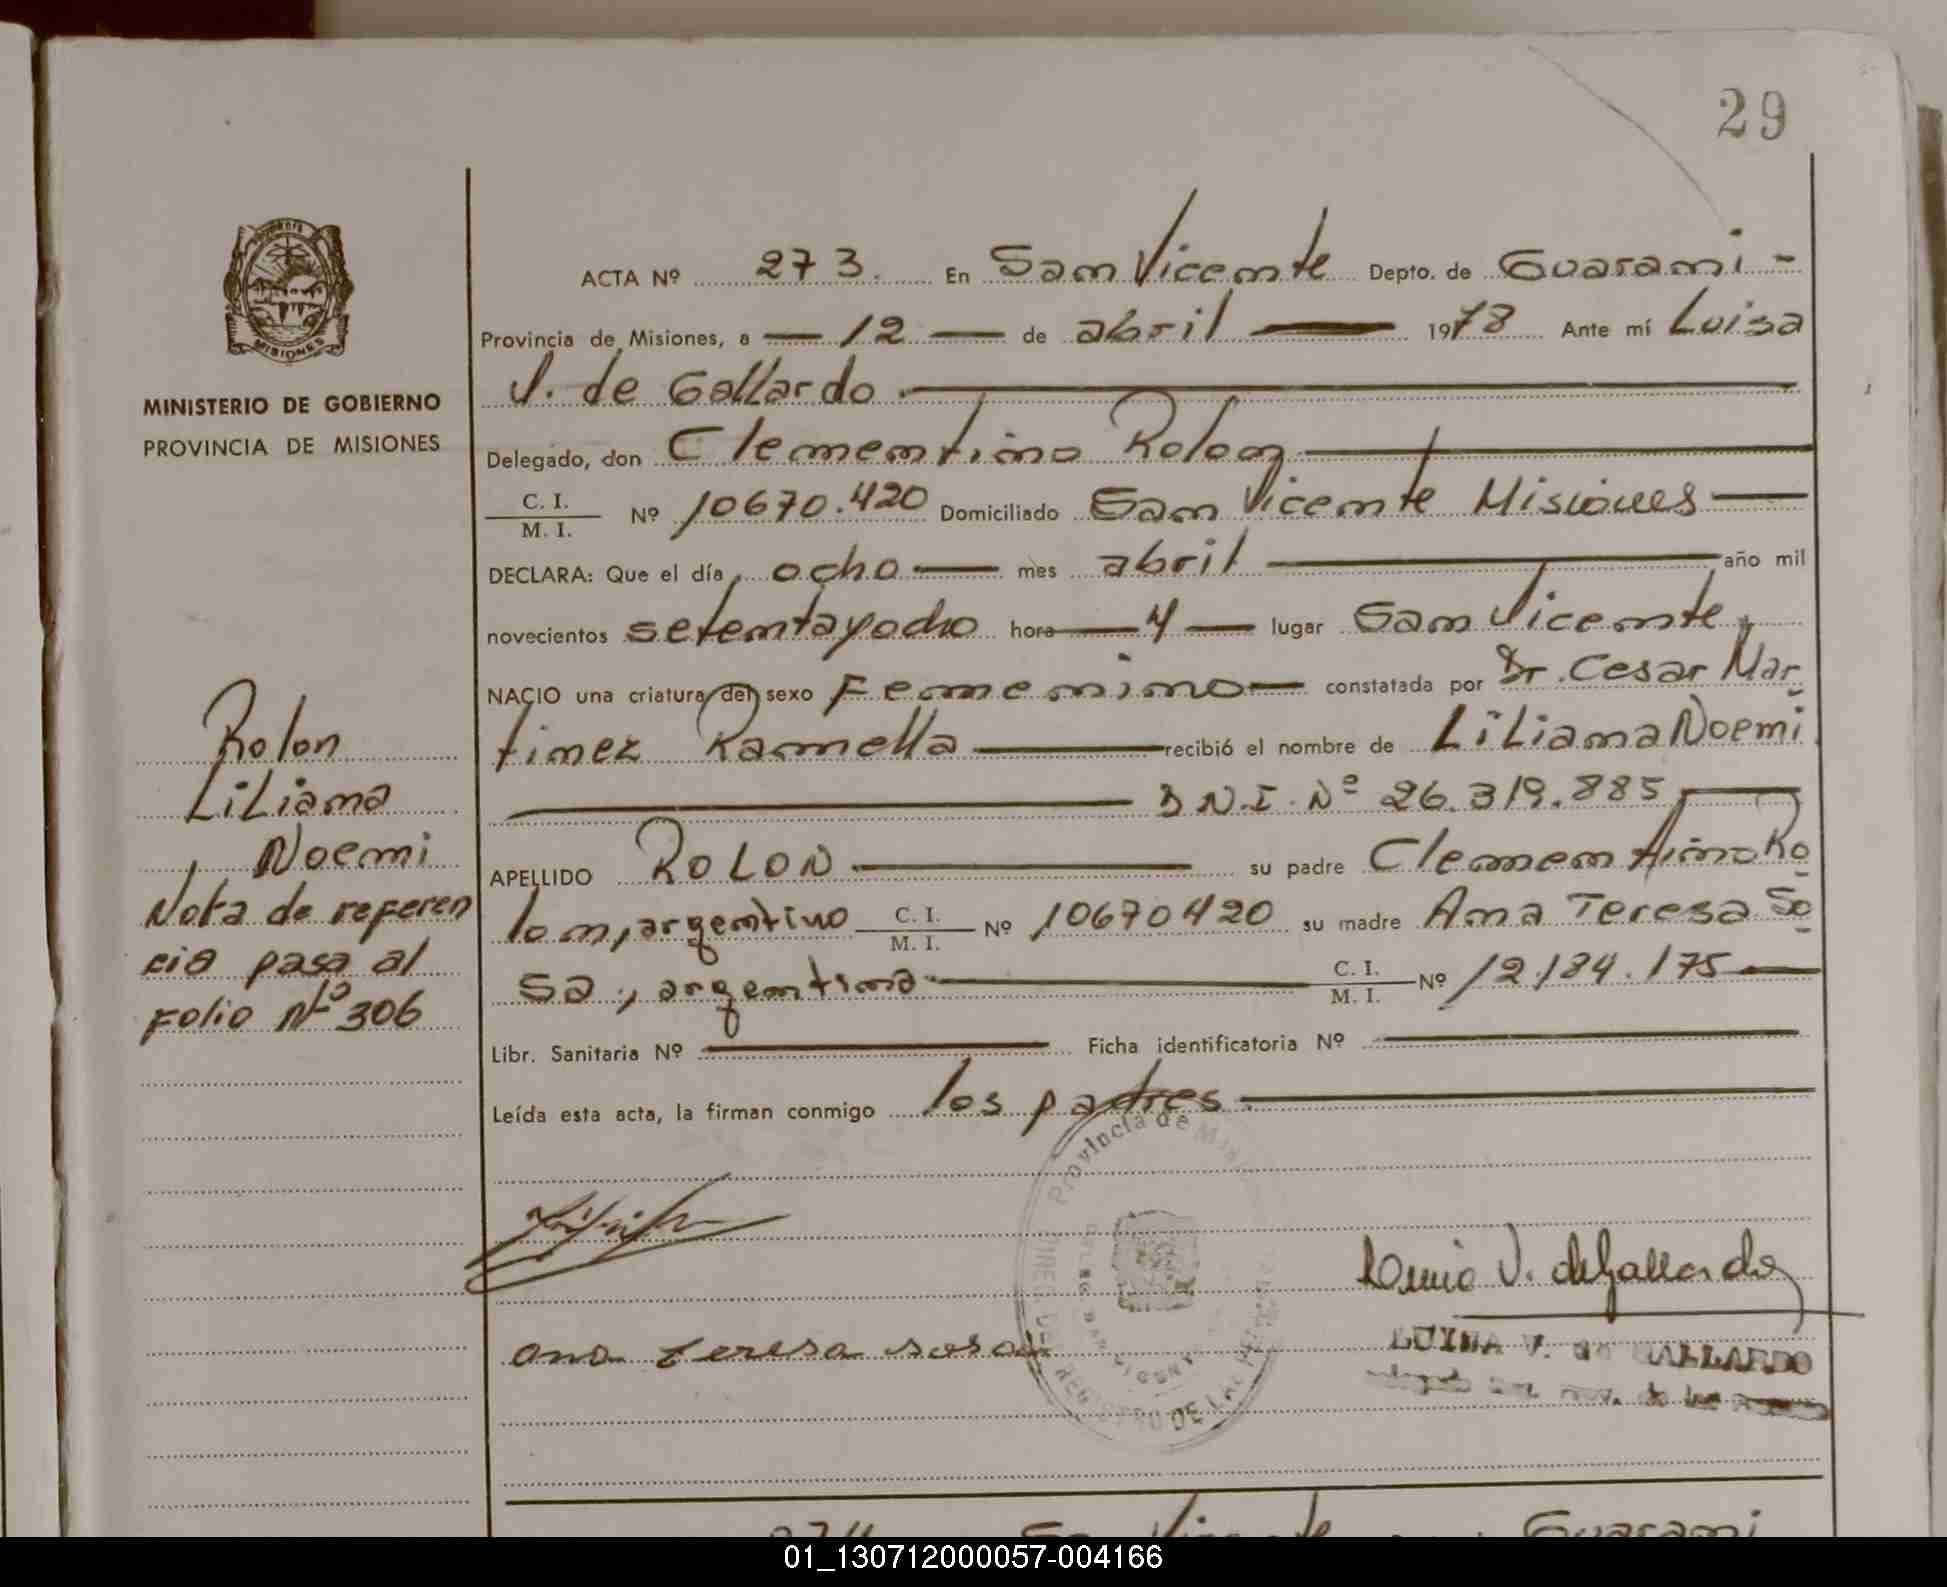 29
ACTA Nº 273. En San Vicente Depto. de Guarani -
Provincia de Misiones, a — 12 — de abril — 1978 Ante mí Luisa
V. de Gallardo —
MINISTERIO DE GOBIERNO
PROVINCIA DE MISIONES
MISIONES
Delegado, don Clementino Rolon —
C. I.
M. I. Nº 10670.420 Domiciliado San Vicente Misiones —
DECLARA: Que el día, ocho — mes abril — año mil
novecientos setentayocho hora — 4 — lugar San Vicente,
NACIO una criatura del sexo Femenino — constatada por Dr. Cesar Mar
tinez Ramella — recibió el nombre de Liliana Noemi
— D.N.I. Nº 26.319.885 —
APELLIDO ROLON — su padre Clementino Ro
lon, argentino C. I.
M. I. Nº 10670420 su madre Ana Teresa So
sa, argentina — C. I.
M. I. Nº 12.184.175 —
Libr. Sanitaria Nº — Ficha identificatoria Nº —
Leída esta acta, la firman conmigo los padres. —
Rolon
Liliana
Noemi
Nota de referen
cia pasa al
Folio Nº 306
Provincia de
REGISTRO DE LAS
ana teresa sosa
Luisa V. de Gallardo
LUISA V. DE GALLARDO
274 San Vicente Guarani
01_130712000057-004166